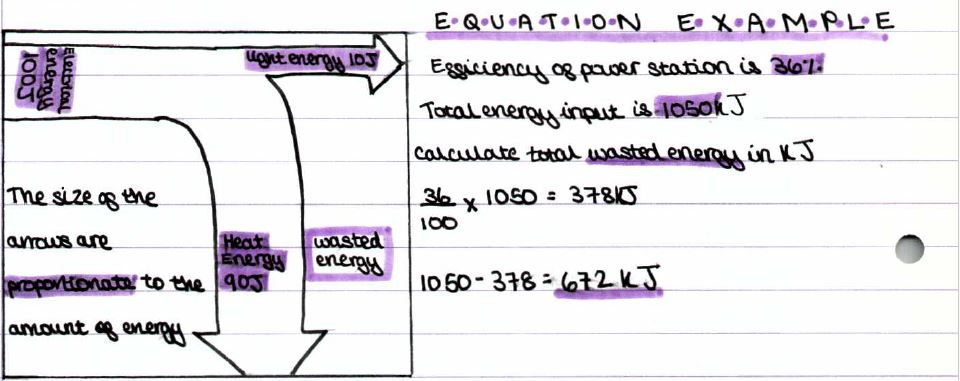 E·Q·U·A·T·I·O·N E·X·A·M·P·L·E
Electrical
energy
100J
Light energy 10J
The size of the
arrows are
proportionate to the
amount of energy
Heat
Energy
90J
wasted
energy
Efficiency of power station is 36%.
Total energy input is 1050kJ
Calculate total wasted energy in KJ
36/100 x 1050 = 378KJ
1050 - 378 = 672 KJ